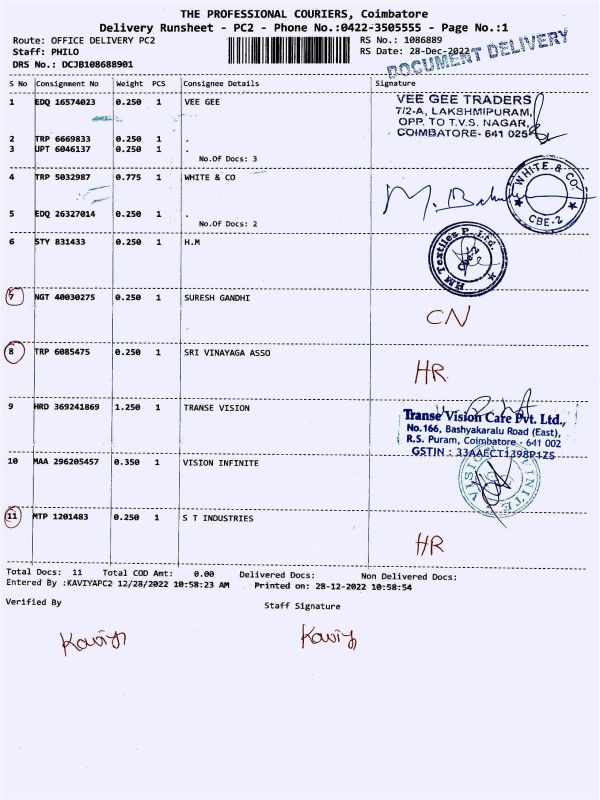 THE PROFESSIONAL COURIERS, Coimbatore
Delivery Runsheet - PC2 - Phone No.:0422-3505555 - Page No.:1
Route: OFFICE DELIVERY PC2
RS No.: 1086889
Staff: PHILO
RS Date: 28-Dec-2022
DRS No.: DCJB108688901
DOCUMENT DELIVERY
S No Consignment No Weight PCS Consignee Details Signature
1 EDQ 16574023 0.250 1 VEE GEE
VEE GEE TRADERS
7/2-A, LAKSHMIPURAM,
OPP. TO T.V.S. NAGAR,
COIMBATORE- 641 025
2 TRP 6669833 0.250 1 .
3 UPT 6046137 0.250 1 .
No.Of Docs: 3
4 TRP 5032987 0.775 1 WHITE & CO
WHITE & CO
CBE-2
5 EDQ 26327014 0.250 1 .
No.Of Docs: 2
6 STY 831433 0.250 1 H.M
HM Textiles P. Ltd.
7 NGT 40030275 0.250 1 SURESH GANDHI
.
CN
8 TRP 6085475 0.250 1 SRI VINAYAGA ASSO
HR
9 HRD 369241869 1.250 1 TRANSE VISION
Transe Vision Care Pvt. Ltd.,
No.166, Bashyakaralu Road (East),
R.S. Puram, Coimbatore - 641 002
GSTIN : 33AAECT1398P1ZS
10 MAA 296205457 0.350 1 VISION INFINITE
11 MTP 1201483 0.250 1 S T INDUSTRIES
HR
Total Docs: 11 Total COD Amt: 0.00 Delivered Docs: Non Delivered Docs:
Entered By :KAVIYAPC2 12/28/2022 10:58:23 AM Printed on: 28-12-2022 10:58:54
Verified By
Staff Signature